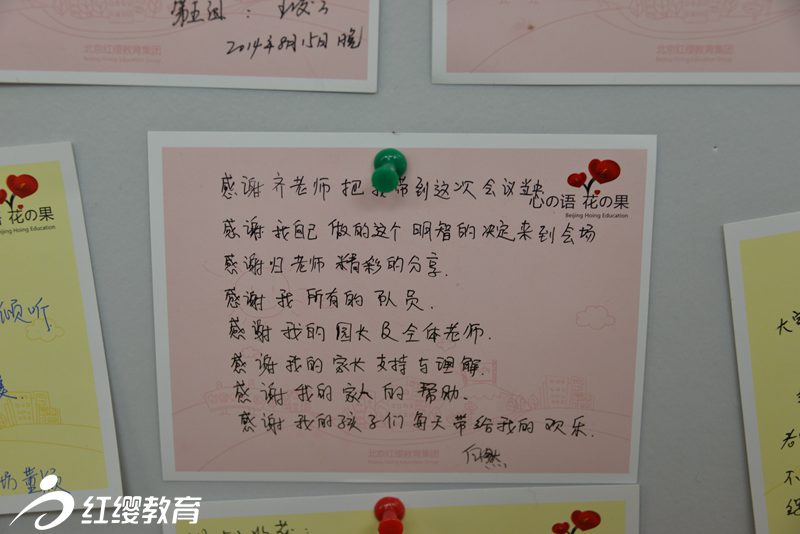 第五组:
2014年8月15日晚
北京红缨教育集团
Beijing Hoing Education Group
北京红缨教育集团
感谢齐老师把我带到这次会议当中
心の语 花の果
Beijing Hoing Education
感谢我自己做的这个明智的决定来到会场
感谢归老师精彩的分享.
感谢我所有的队员.
感谢我的园长及全体老师.
感谢我的家长支持与理解.
感谢我的家人的帮助.
感谢我的孩子们每天带给我的欢乐.
北京红缨教育集团
语 花の果
Beijing Hoing Education
倾听
大家
红缨教育